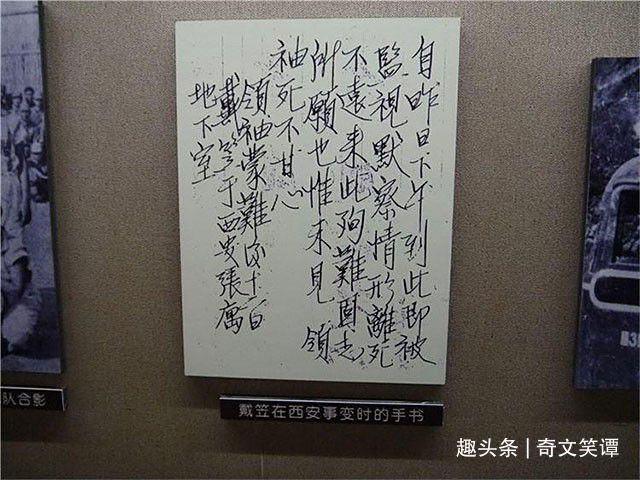 自昨日下午到此即被
監視默察情形離死
不遠來此殉難固志
所願也惟未見 領
袖死不甘心
領袖蒙難後十二日
戴笠于西安張寓
地下室
队合影
戴笠在西安事变时的手书
趣头条 | 奇文笑谭